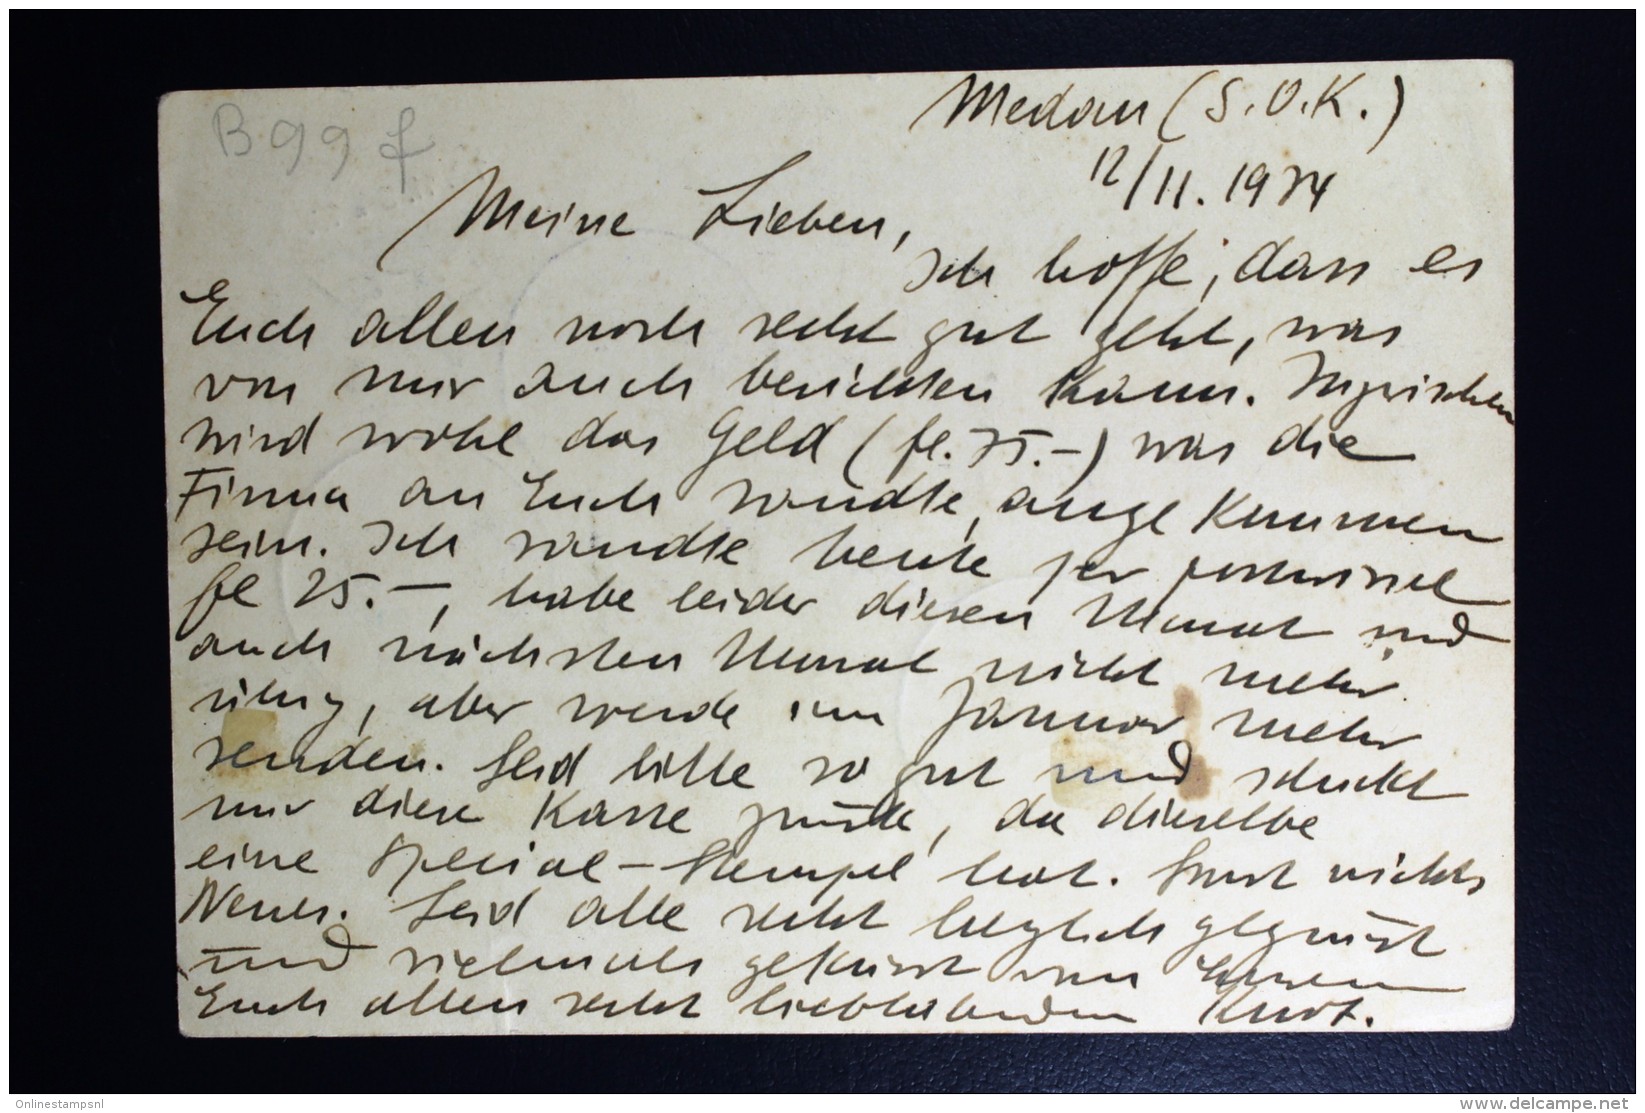 B 99 f
Medan (S.O.K.)
12/11. 1934
Meine Lieben,
Ich hoffe, dass es
Euch allen noch recht gut geht, was
von mir auch berichten kann. Inzwischen
wird wohl das Geld (fl. 75.-) was die
Firma an Euch sandte, angekommen
sein. Ich sandte heute per postwissel
fl 25.-, habe leider diesen Monat und
auch nächsten Monat nicht mehr
übrig, aber werde im Januar mehr
senden. Seid bitte so gut und schickt
mir diese Karte zurück, da dieselbe
eine Spezial-Stempel hat. Sonst nichts
Neues. Seid alle recht herzlich gegrüsst
und vielmals geküsst von Eurem
Euch allen recht liebhabenden Kurt.
Onlinestampsnl
www.delcampe.net